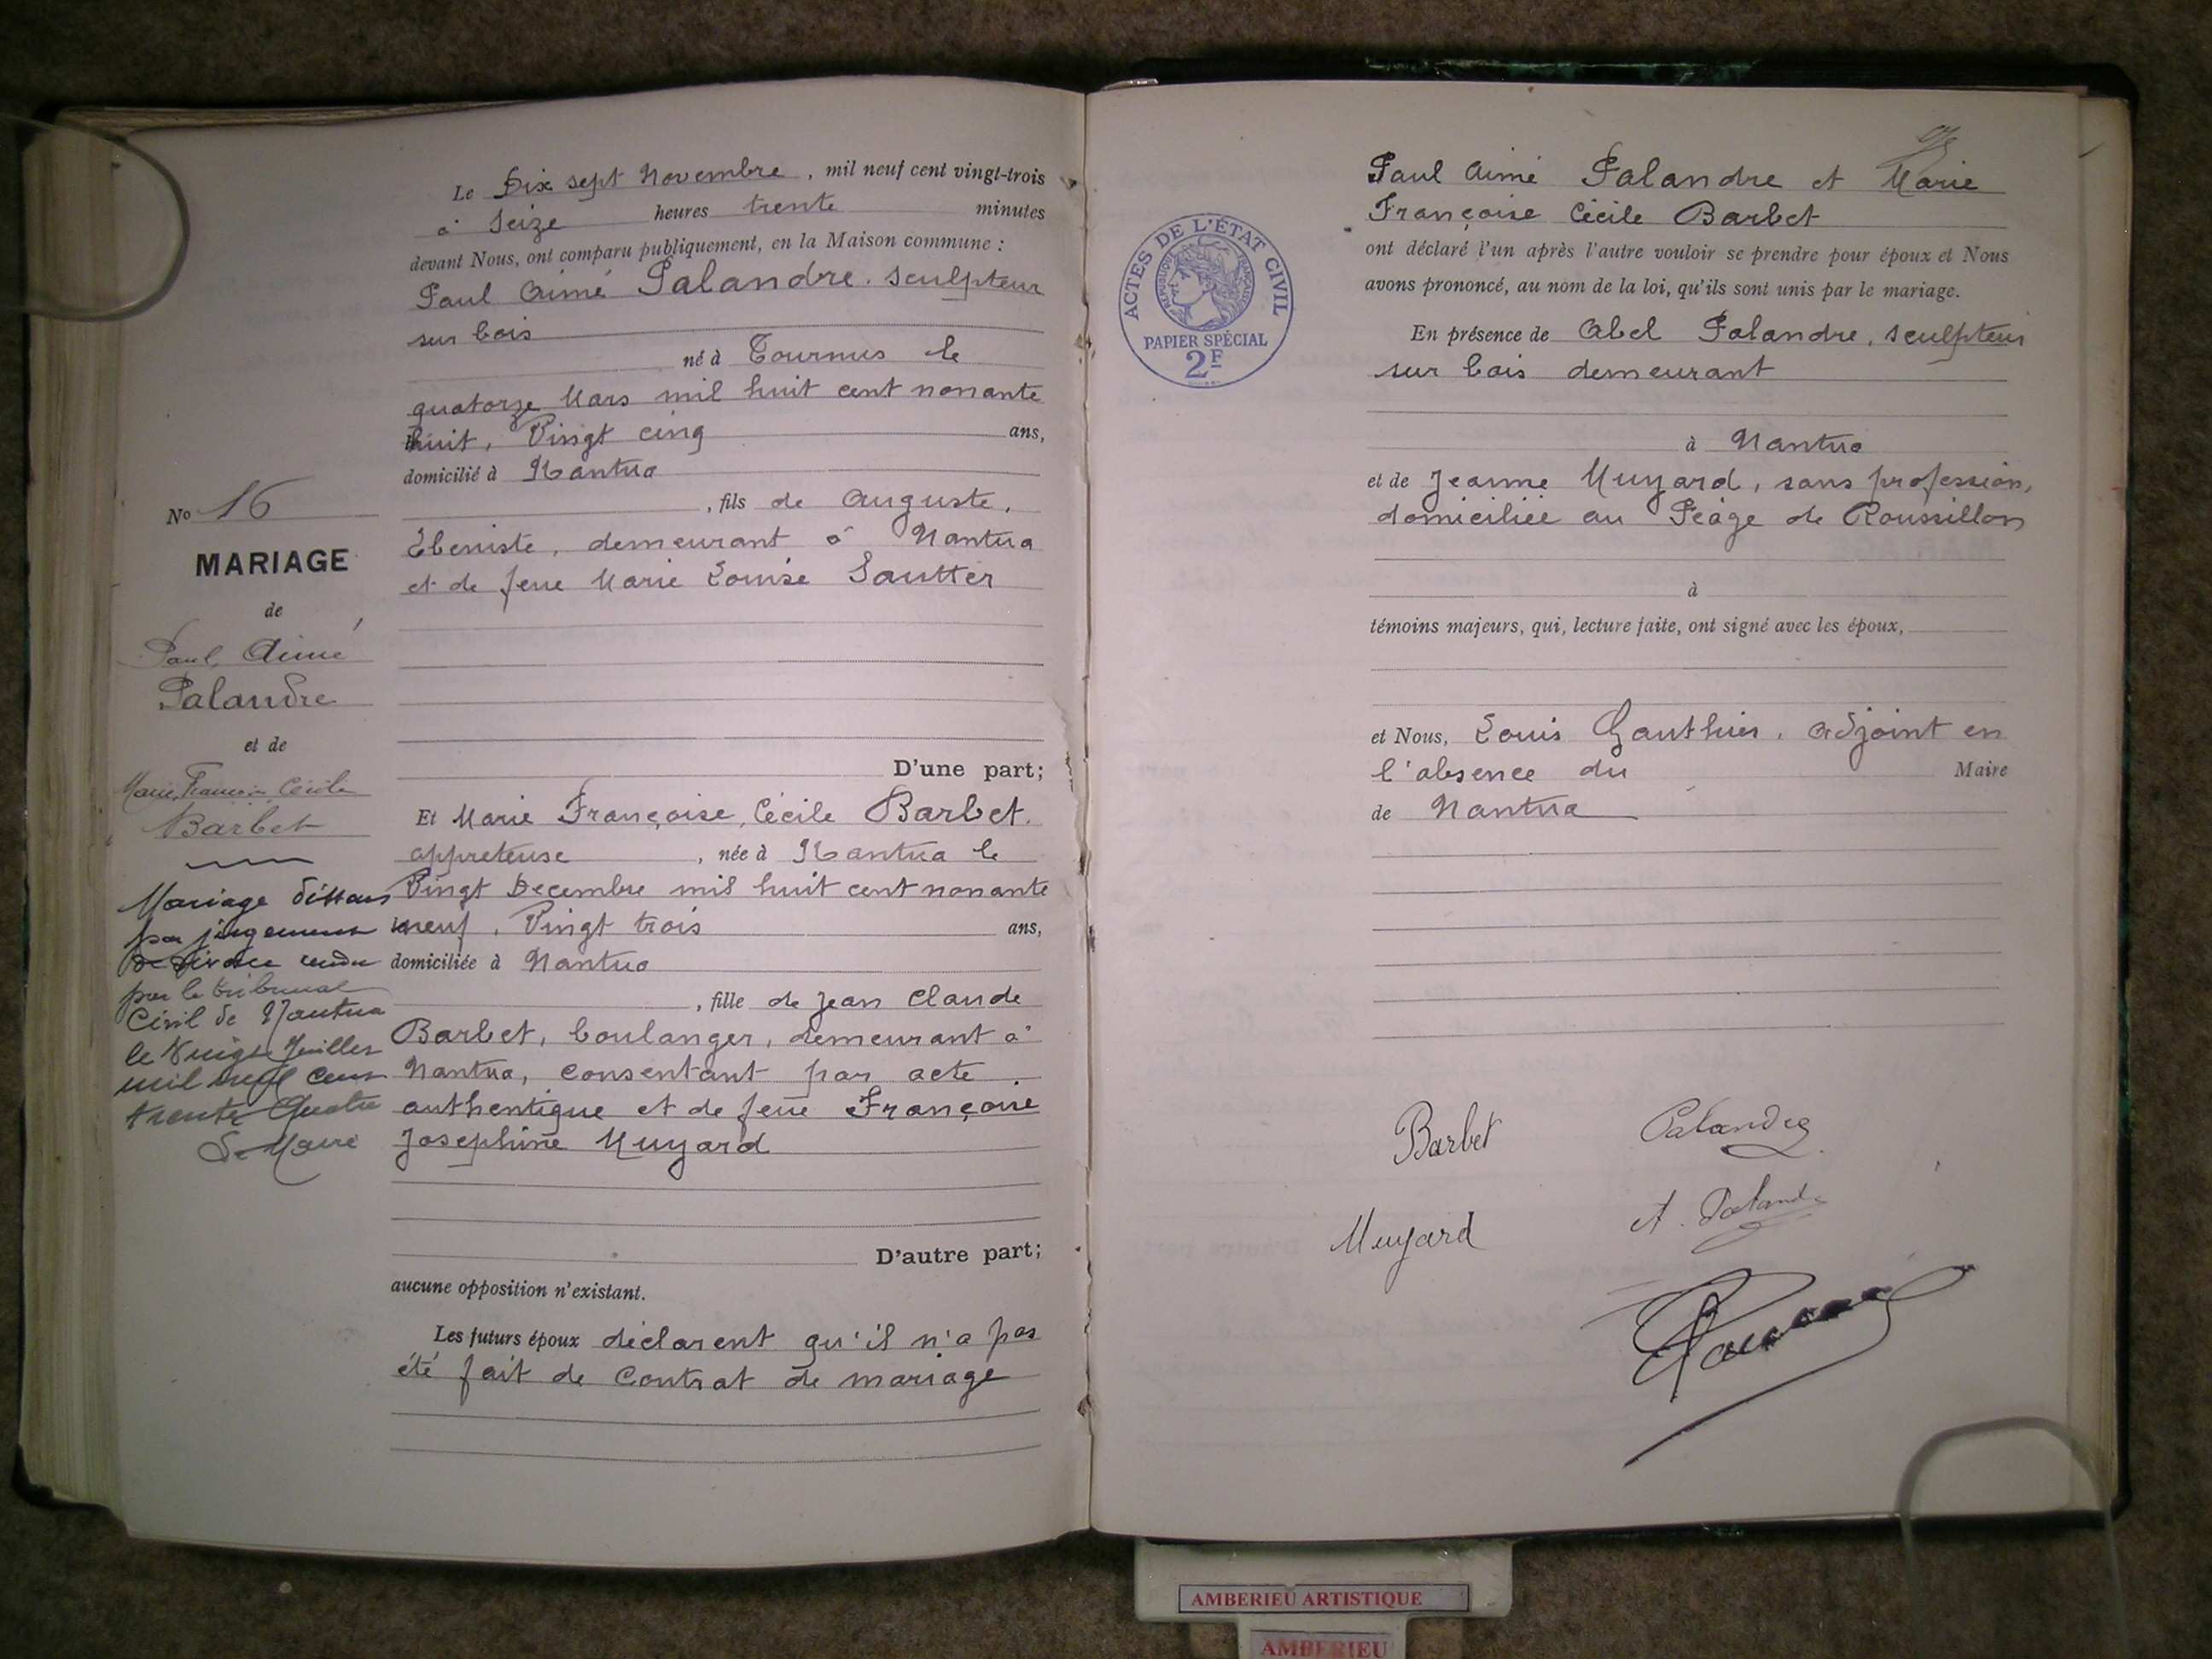 Le Dix sept Novembre, mil neuf cent vingt-trois
à Seize heures trente minutes
devant Nous, ont comparu publiquement, en la Maison commune :
Paul Aimé Palandre. Sculpteur
sur bois
né à Tournus le
quatorze Mars mil huit cent nonante
huit, Vingt cinq ans,
domicilié à Nantua
, fils de Auguste,
Ebeniste, demeurant à Nantua
et de feue Marie Louise Sautter
D'une part;
Et Marie Françoise, Cécile Barbet.
appreteuse, née à Nantua le
Vingt Decembre mil huit cent nonante
neuf, Vingt trois ans,
domiciliée à Nantua
, fille de Jean Claude
Barbet, boulanger, demeurant à
Nantua, consentant par acte
authentique et de feue Françoise
Josephine Muyard
D'autre part;
aucune opposition n'existant.
Les futurs époux déclarent qu'il n'a pas
été fait de Contrat de mariage
No 16
MARIAGE
de
Paul Aimé
Palandre
et de
Marie Cécile
Barbet
Mariage dissous
par jugement
de divorce rendu
par le tribunal
Civil de Nantua
le Juillet
mil neuf cent
trente Quatre
Le Maire
ACTES DE L'ÉTAT CIVIL
RÉPUBLIQUE FRANÇAISE
PAPIER SPÉCIAL
2F
Paul Aimé Palandre et Marie
Françoise Cécile Barbet
ont déclaré l'un après l'autre vouloir se prendre pour époux et Nous
avons prononcé, au nom de la loi, qu'ils sont unis par le mariage.
En présence de Abel Palandre, sculpteur
sur bois demeurant
à Nantua
et de Jeanne Muyard, sans profession,
domiciliée au Péage de Roussillon
à
témoins majeurs, qui, lecture faite, ont signé avec les époux,
et Nous, Louis Gauthier, adjoint en
l'absence du Maire
de Nantua
Barbet Palandre
Muyard A. Palandre
AMBERIEU ARTISTIQUE
AMBERIEU